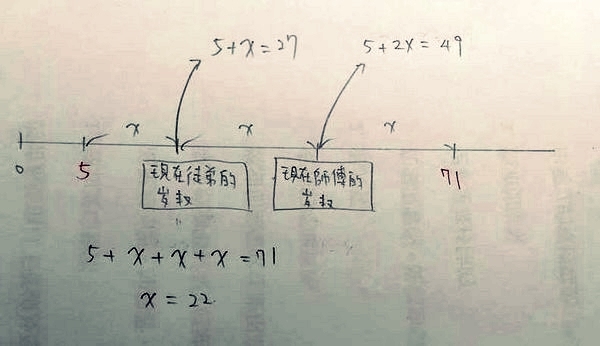 5+x=27
5+2x=49
x
x
x
0
5
現在徒弟的
岁数
現在師傅的
岁数
71
5+x+x+x=71
x=22